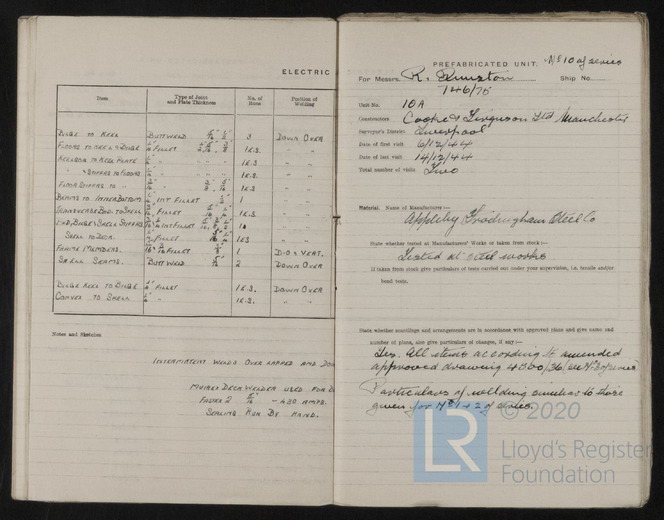 ELECTRIC
Item
Type of Joint and Plate Thickness
No. of Runs
Position of Welding
BILGE TO KEEL BUTT WELD 3 DOWN OVER
FLOORS TO KEEL & BILGE FILLET 1 R.S. " "
KEELSON TO KEEL PLATE " 1 R.S " "
" STIFFRS TO FLOORS " 1 R.S " "
FLOOR STIFFRS TO " " 1 R.S " "
BEAMS TO INNER BOTTOM INT FILLET 1 " "
TRANSVERSE BHD. TO SHELL FILLET 1 R.S " "
END, BILGE & SHELL STIFFRS INT FILLET " "
SHELL TO DECK FILLET 1 R.S " "
FRAME MEMBERS FILLET 1 D-O & VERT.
SHELL SEAMS BUTT WELD 2 DOWN OVER
BILGE KEEL TO BILGE FILLET 1 R.S. DOWN OVER
TO SHELL " 1 R.S. " "
Notes and Sketches
INTERMITTENT WELDS OVERLAPPED AND
DECK WELDER USED FOR
- 430 AMPS.
SEALING RUN BY HAND.
No 10 of series
PREFABRICATED UNIT.
For Messrs. R. Dunston Ship No.
146/75
Unit No. 10A
Constructors Cooke & Ferguson Ltd Manchester
Surveyor's District Liverpool
Date of first visit 6/12/44
Date of last visit 14/12/44
Total number of visits Two
Material. Name of Manufacturer:—
Appleby Frodingham Steel Co
State whether tested at Manufacturers' Works or taken from stock:—
Tested at steel works
If taken from stock give particulars of tests carried out under your supervision, i.e. tensile and/or
bend tests.
State whether scantlings and arrangements are in accordance with approved plans and give name and
number of plans, also give particulars of changes, if any:—
Yes. All items according to amended
approved drawing 4300/36 (see No 3 of series)
Particulars of welding similar to those
given for No 1 & 2 of series.
© 2020
LR
Lloyd's Register
Foundation